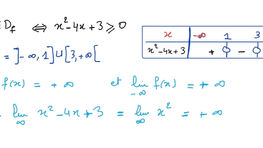 ∈ D_f ⇔ x² - 4x + 3 ⩾ 0
x -∞ 1 3
x²-4x+3 + 0 - 0
= ]-∞, 1] ∪ [3, +∞[
f(x) = +∞ et lim_{-∞} f(x) = +∞
lim_{∞} x² - 4x + 3 = lim_{∞} x² = +∞